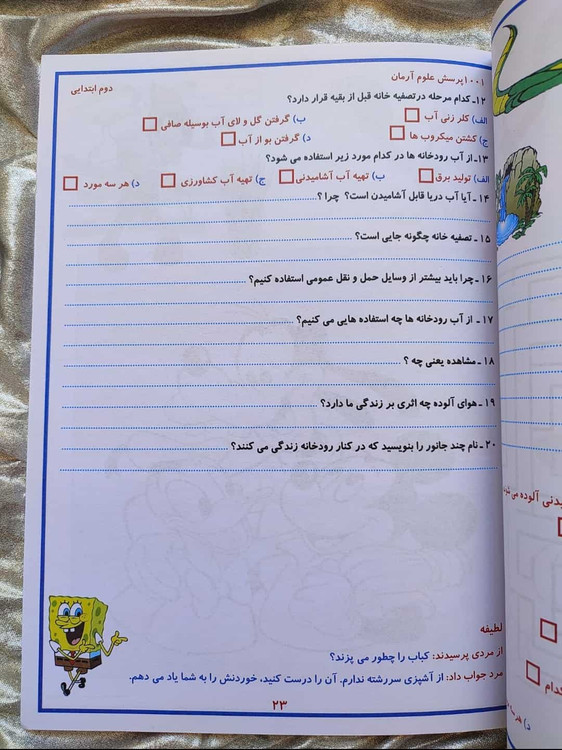 ۱۰۰۱پرسش علوم آرمان
دوم ابتدایی
۱۲ـ کدام مرحله درتصفیه خانه قبل از بقیه قرار دارد؟
الف) کلر زنی آب
ب) گرفتن گل و لای آب بوسیله صافی
ج) کشتن میکروب ها
د) گرفتن بو از آب
۱۳ـ از آب رودخانه ها در کدام مورد زیر استفاده می شود؟
الف) تولید برق
ب) تهیه آب آشامیدنی
ج) تهیه آب کشاورزی
د) هر سه مورد
۱۴ ـ آیا آب دریا قابل آشامیدن است؟ چرا ؟
۱۵ ـ تصفیه خانه چگونه جایی است؟
۱۶ ـ چرا باید بیشتر از وسایل حمل و نقل عمومی استفاده کنیم؟
۱۷ ـ از آب رودخانه ها چه استفاده هایی می کنیم؟
۱۸ ـ مشاهده یعنی چه ؟
۱۹ ـ هوای آلوده چه اثری بر زندگی ما دارد؟
۲۰ ـ نام چند جانور را بنویسید که در کنار رودخانه زندگی می کنند؟
لطیفه
از مردی پرسیدند: کباب را چطور می پزند؟
مرد جواب داد: از آشپزی سررشته ندارم. آن را درست کنید، خوردنش را به شما یاد می دهم.
۲۳
آلوده می
کدام